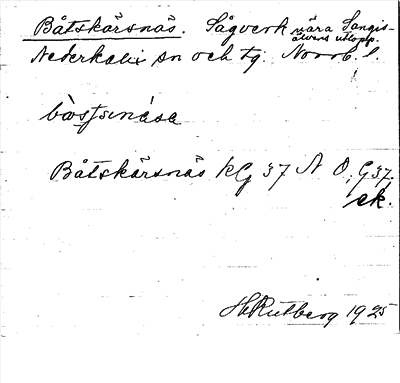 Båtskärsnäs. Sågverk nära Sangis-
älvens utlopp.
Nederkalix sn och tg. Norrb. l.
Båtskärsnäs kG 37 N O, G 37,
ek.
H Rutberg 1925